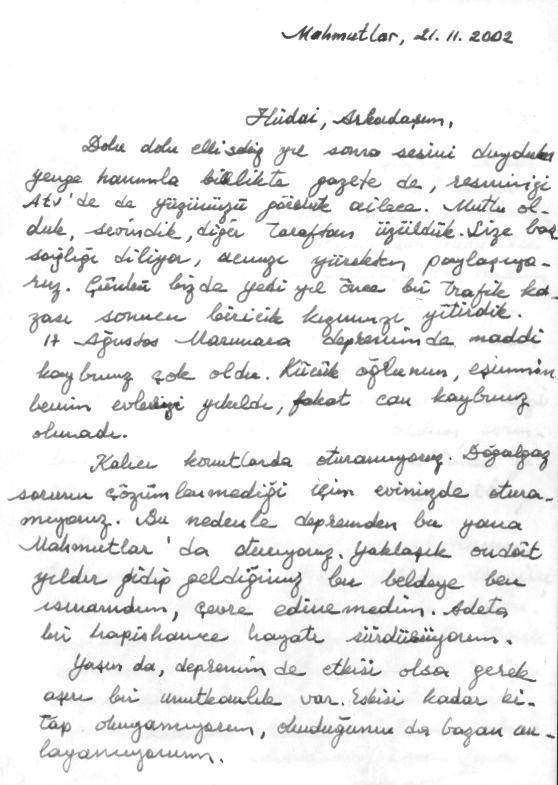 Mahmutlar, 21.11.2002
Hüdai, Arkadaşım,
Dolu dolu ellisekiz yıl sonra sesini duyduk
yenge hanımla birlikte gazete de, resminizi
Atv'de de yüzünüzü gördük ailece. Mutlu ol-
duk, sevindik, diğer taraftan üzüldük. Size baş
sağlığı diliyor, acınızı yürekten paylaşıyo-
ruz. Çünkü bizde yedi yıl önce bir trafik ka-
zası sonucu biricik kızımızı yitirdik.
17 Ağustos Marmara depreminde maddi
kaybımız çok oldu. Küçük oğlumun, eşimin
benim evlerimiz yıkıldı, fakat can kaybımız
olmadı.
Kalıcı konutlarda oturamıyoruz. Doğalgaz
sorunu çözümlenmediği için evinizde otura-
mıyoruz. Bu nedenle depremden bu yana
Mahmutlar'da oturuyoruz. Yaklaşık ondört
yıldır gidip geldiğimiz bu beldeye ben
ısınamadım, çevre edinemedim. Adeta
bir hapishane hayatı sürdürüyorum.
Yaşın da, depremin de etkisi olsa gerek
aşırı bir unutkanlık var. Eskisi kadar ki-
tap okuyamıyorum, okuduğumu da bazan an-
layamıyorum.